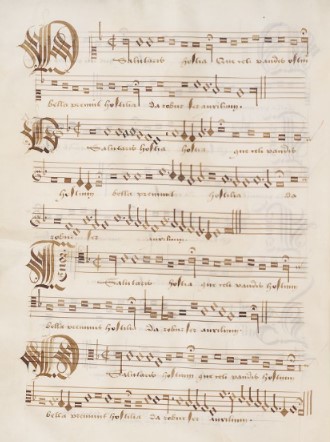 O Salutaris hostia Que celi pandis ostium
bella premunt hostilia Da robur fer auxilium
O Salutaris hostia hostia que celi pandis
hostium bella premunt hostilia Da
robur fer auxilium
Tenor Salutaris hostia que celi pandis hostium
bella premunt hostilia Da robur fer auxilium
O Salutaris hostium que celi pandis hostium
bella premunt hostilia Da robur fer auxilium